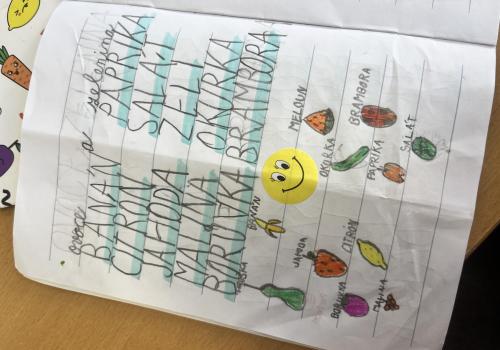 ovoce a zelenina
BANÁN PAPRIKA
CITRÓN SALÁT
JAHODA ZELÍ
MALINA OKURKA
BORŮVKA BRAMBORA
BANÁN
MELOUN
JAHODA
OKURKA
BORŮVKA CITRÓN
BRAMBORA
PAPRIKA
MALINA
SALÁT